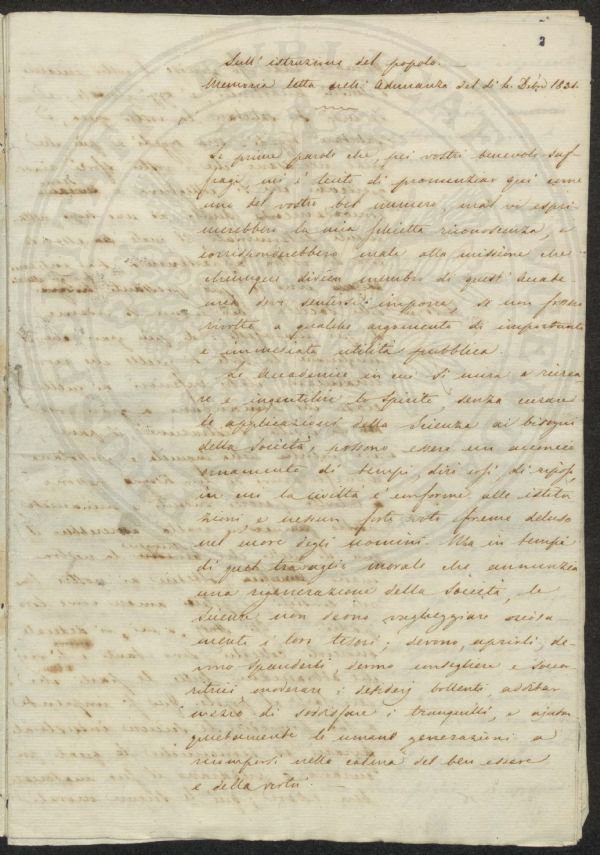 2
Sull' istruzione del popolo.
Memoria letta nell' Adunanza del dì 4. Dibre 1831.
Le prime parole che, pei vostri benevoli suf-
fragi, mi è dato di pronunziar qui come
uno del vostro bel numero, mal vi espri-
merebbero la mia schietta riconoscenza, e
corrisponderebbero male alla missione che
chiunque diventa membro di quest' Accade-
mia deve sentirsi imporre, se non fossero
rivolte a qualche argomento di importante
e immediata utilità pubblica.
Le Accademie in cui si mira a ricrea-
re e ingentilire lo spirito, senza curare
le applicazioni della Scienza ai bisogni
della Società, possono essere un acconcio
ornamento di tempi, dirò così, di riposo,
in cui la civiltà è conforme alle istitu
zioni, e nessun forte voto freme deluso
nel cuore degli uomini. Ma in tempi
di quel travaglio morale che annunzia
una rigenerazione della Società, le
Scienze non devono vagheggiare oziosa
mente i loro tesori; devono aprirli, de-
vono spanderli, devono consigliere e soccor
ritrici, moderare i desiderj bollenti, additar
mezzo di soddisfare i tranquilli, e ajutar
quietamente le umane generazioni a
ricomporsi nella calma del ben essere
e della virtù.